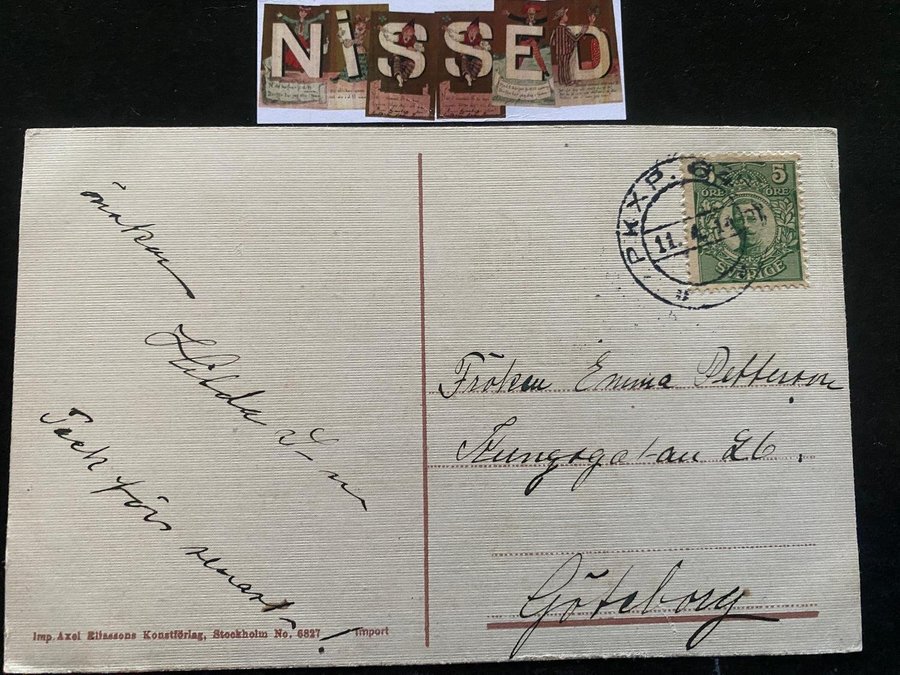 NISSED
önskar
Hilda L-n
Tack förs senast!
Imp. Axel Eliassons Konstförlag, Stockholm No. 6827 Import
PKXP.
11.4.14
5
ÖRE ÖRE
SVERIGE
Fröken Emma Petterson
Kungsgatan 26.
Göteborg